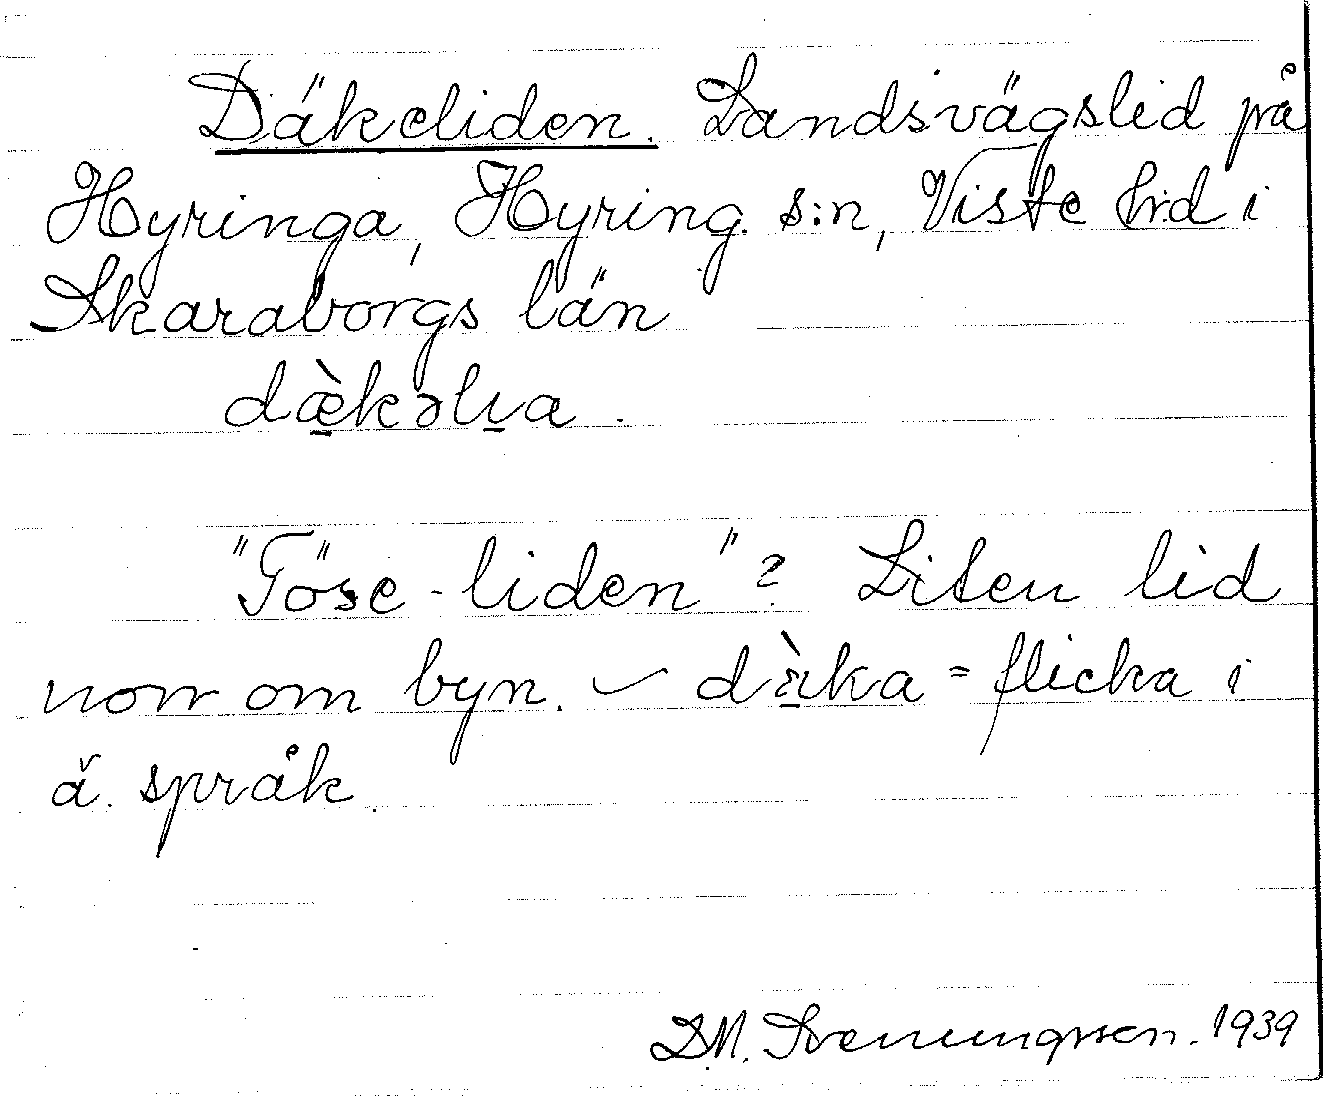 Däkeliden. Landsvägslid på
Hyringa, Hyring. s:n, Viste hrd i
Skaraborgs län
dæ̀kəlıa.
"Töse-liden"? Liten lid
norr om byn. – dæ̀ka = flicka i
ä. språk.
D.M. Svenungsson. 1939